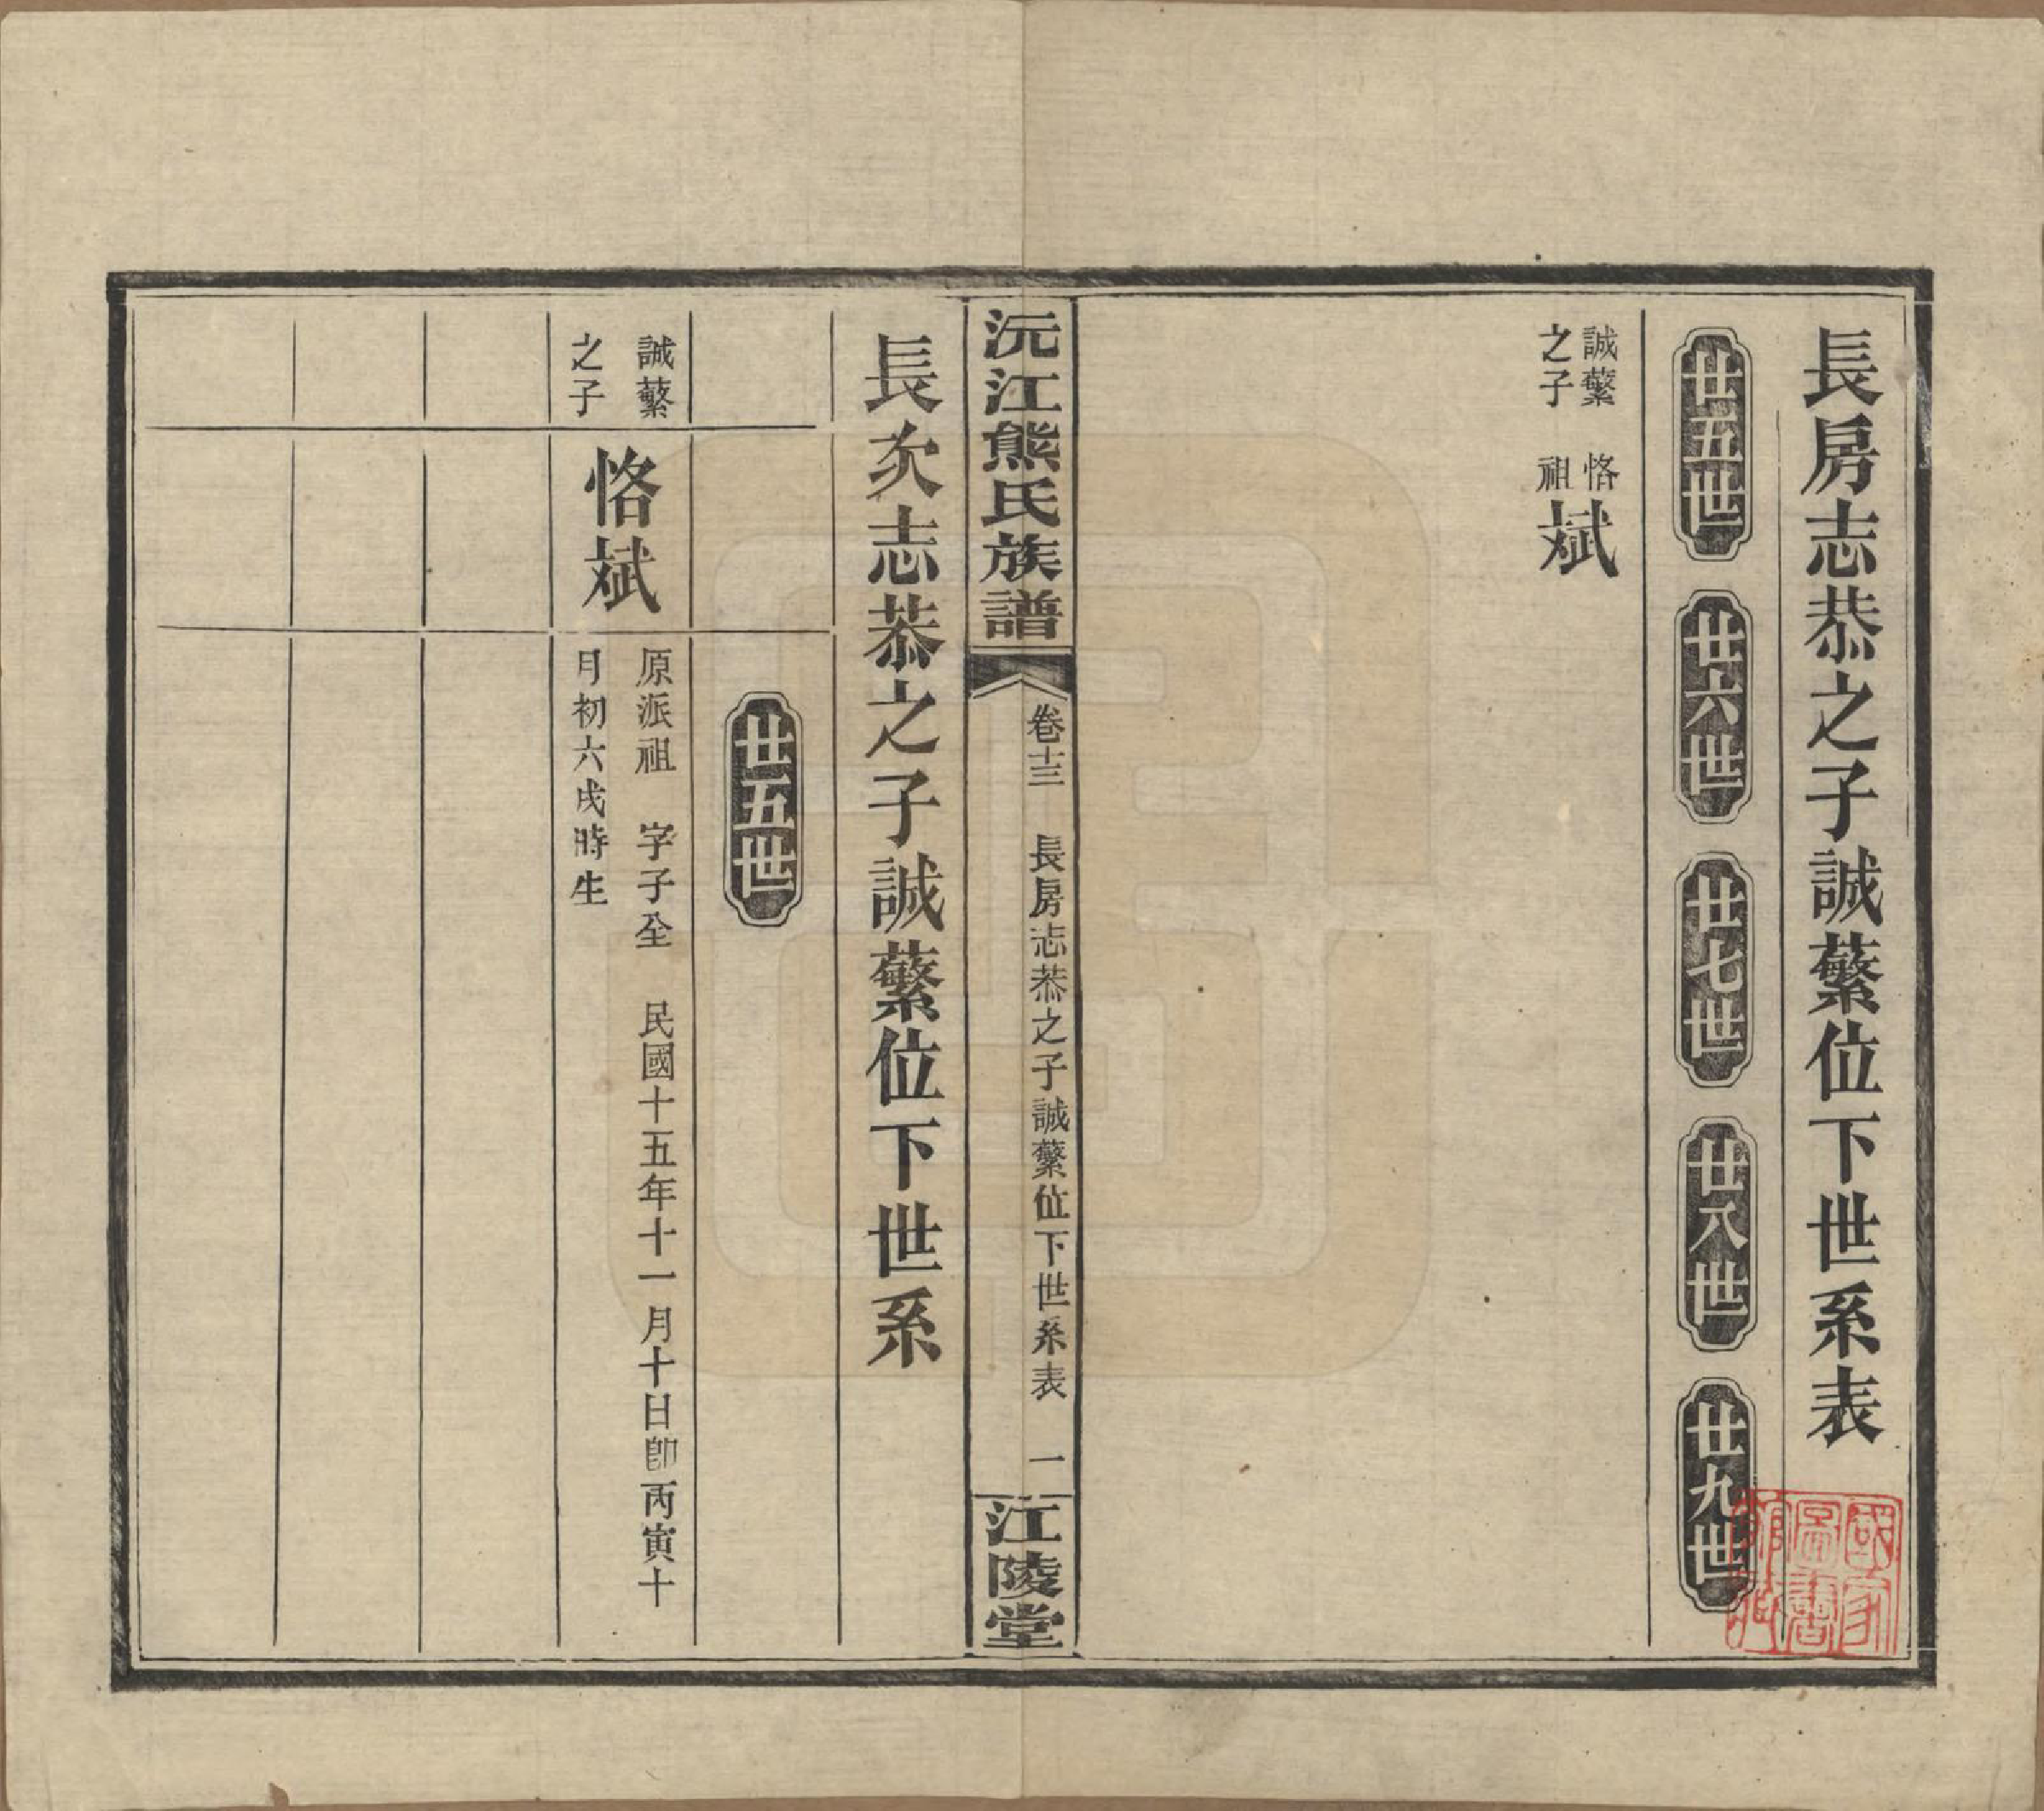 長房志恭之子誠蘩位下世系表
廿五世
廿六世
廿七世
廿八世
廿九世
誠蘩
之子
恪
祖
斌
沅江熊氏族譜
卷十三
長房志恭之子誠蘩位下世系表
一
江陵堂
長次志恭之子誠蘩位下世系
廿五世
誠蘩
之子
恪斌
原派祖 字子全 民國十五年十一月十日卽丙寅十
月初六戌時生
國家
圖書
館藏